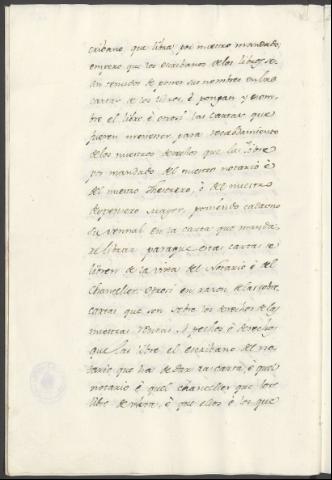 cribano, que libra por nuestro mandado,
empero que los escribanos de los libros se
an tenudos de poner sus nombres en las
cartas de los libros, é pongan y nom
bre el libro é otrosi las cartas que
fueren menester para recabdamiento
de los nuestros derechos que las libre
por mandado del nuestro notario é
del nuestro Thesorero, ó del nuestro
despensero mayor, poniendo cada uno
su vennal en la carta que manda
re librar para que esta carta se
libren de la vista del Notario é del
Chanceller. Otrosi en razon de las sobre
cartas que son sobre los derechos de las
nuestras rentas, é pechos é derechos
que las libre el escribano del no
tario que ha de dar la carta, é quel
notario é quel chanceller que los
libre de vista, é que ellos é los que